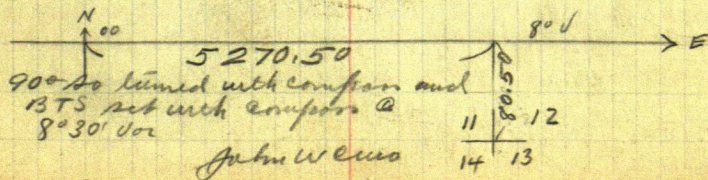 N
00 8° V
E
5270.50
80.50
90° so turned with compass and
BTS set with compass @
8° 30' Var
11 12
14 13
John W